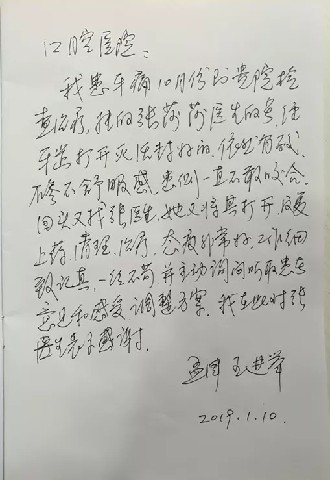 口腔医院:
我患牙痛10月份到贵院检
查治疗,挂的张莎莎医生的号,经
牙齿打开灭活封好的,依然有酸、
疼不舒服感,患侧一直不敢咬合,
回头又找张医生,她又将其打开,反复
上药、清理、治疗,态度非常好,工作细
致认真,一丝不苟并主动询问听取患者
意见和感受,调整方案。我在此对张
医生表示感谢!
2019.1.10.